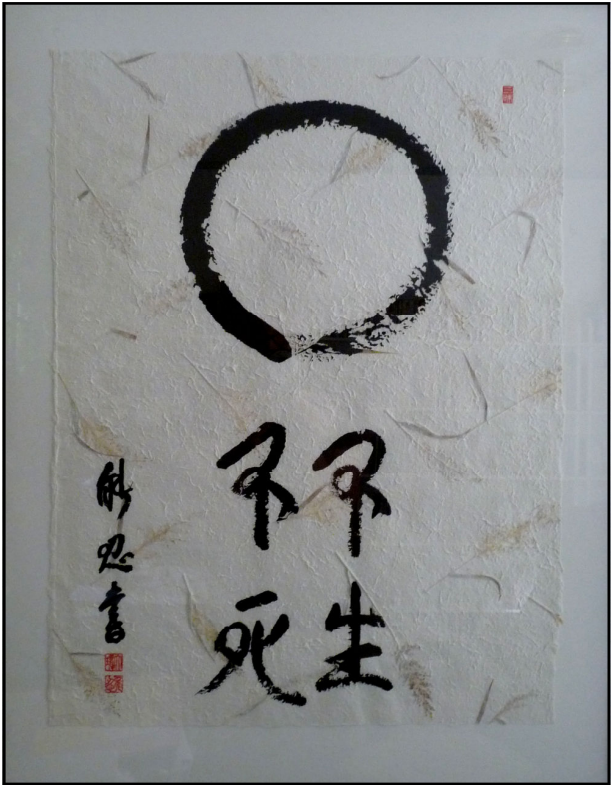 不生
不死
能忍書